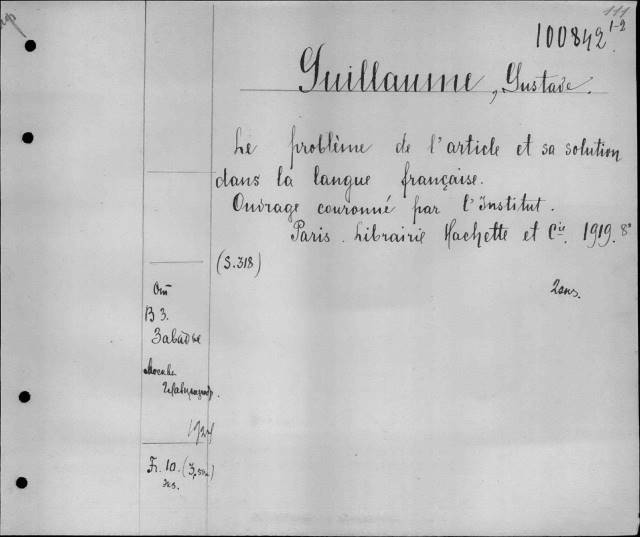 111
100842 1-2
Guillaume, Gustave.
Le problème de l'article et sa solution
dans la langue française.
Ouvrage couronné par l'Institut.
Paris. Librairie Hachette et Cie. 1919. 8°
(S. 318)
2 экз.
От
В 3.
Fr. 10.